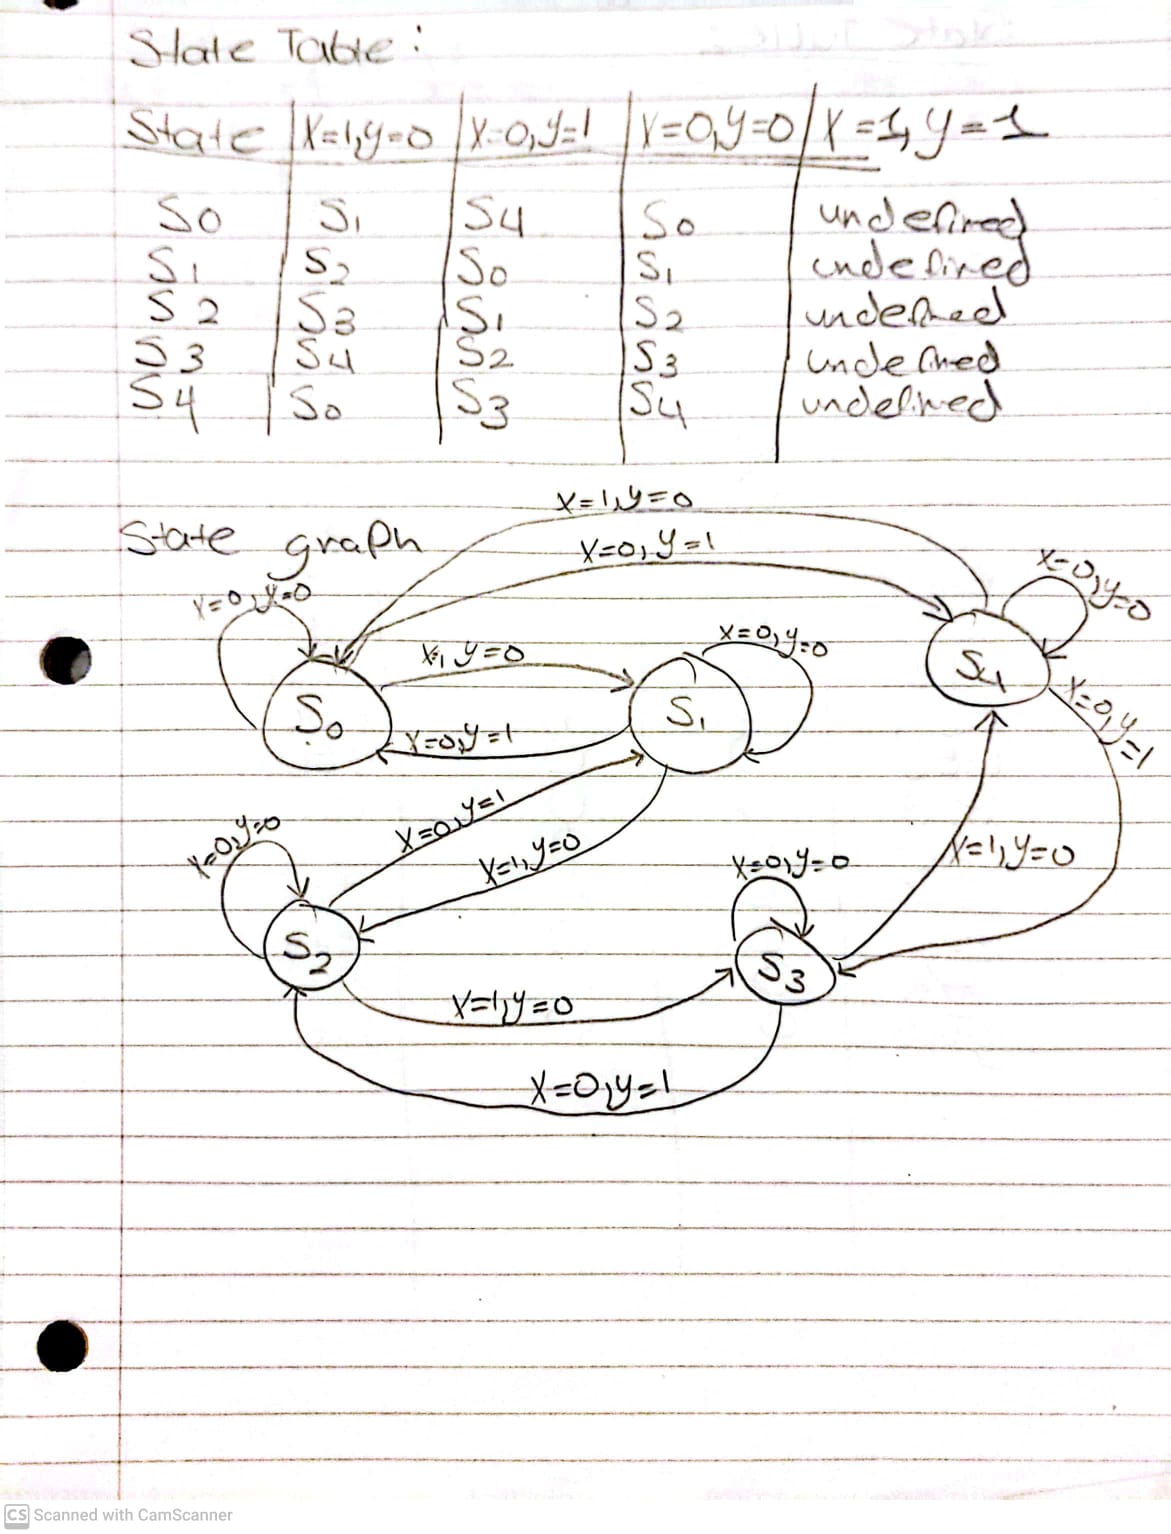 State Table:
State X=1,y=0 X=0,y=1 X=0,y=0 X=1,y=1
S0 S1 S4 S0 undefined
S1 S2 S0 S1 undefined
S2 S3 S1 S2 undefined
S3 S4 S2 S3 undefined
S4 S0 S3 S4 undefined
X=1,y=0
State graph
X=0,y=1
X=0,y=0
X=0,y=0
X=0,y=0
X=1,y=0
S4
S0
S1
X=0,y=1
X=0,y=1
X=0,y=1
X=0,y=0
X=1,y=0
X=1,y=0
X=0,y=0
S2
S3
X=1,y=0
X=0,y=1
CS Scanned with CamScanner